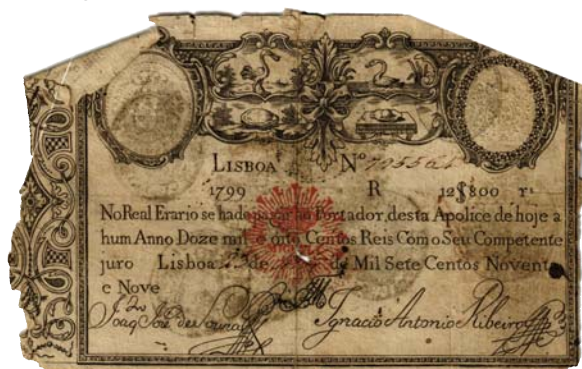 LISBOA Nº
1799 R 12$800 rˢ
No Real Erario se hade pagar ao Portador desta Apolice de hoje a
hum Anno Doze mil e oito Centos Reis Com o Seu Competente
juro Lisboa de de Mil Sete Centos Novent
e Nove
Joaq José de Souza Ignacio Antonio Ribeiro